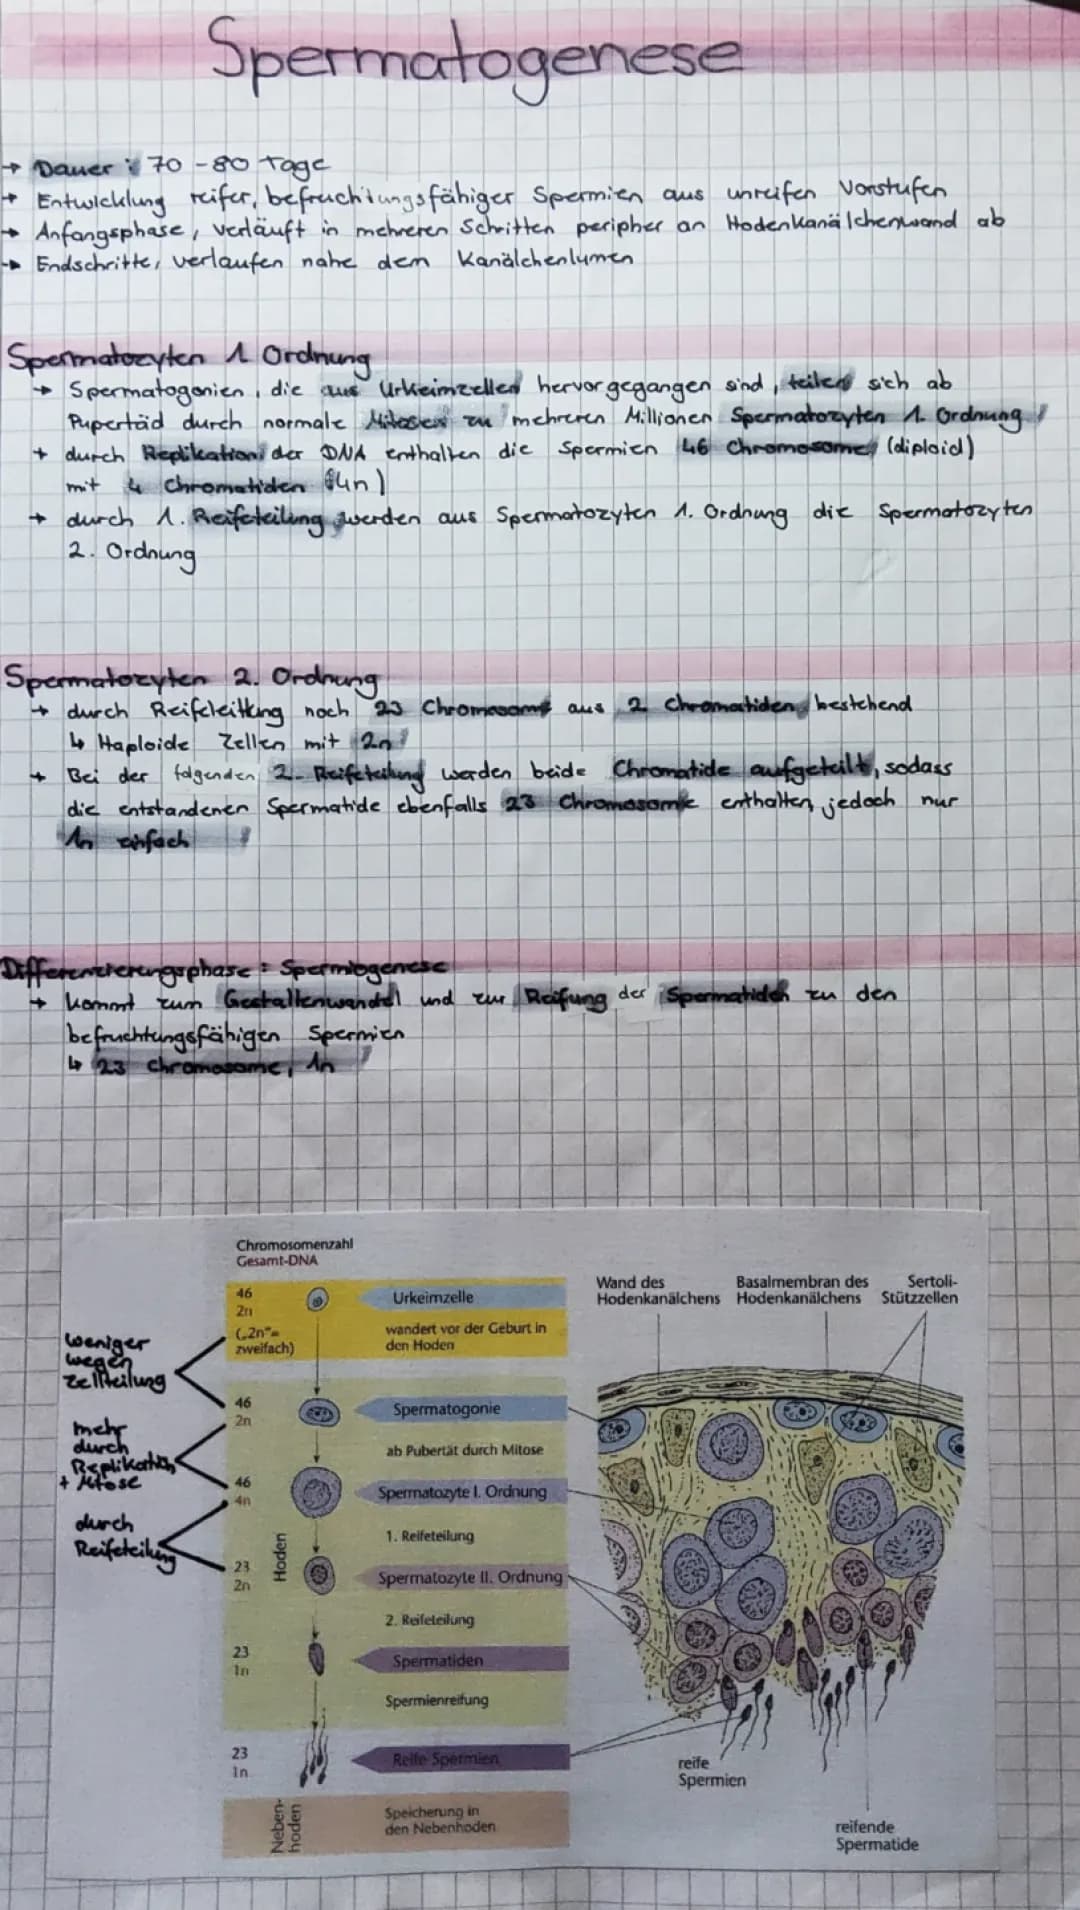 Spermatogenese
→ Dauer: 70-80 Tage
→ Entwicklung reifer, befruchtungsfähiger Spermien aus unreifen Vorstufen
→ Anfangsphase, verläuft in mehreren Schritten peripher an Hodenkanälchenwand ab
→ Endschritte, verlaufen nahe dem Kanälchenlumen
Spermatozyten 1 Ordnung
→ Spermatogonien, die aus Urkeimzellen hervorgegangen sind, teilen sich ab
Pupertäd durch normale Mitosen zu mehreren Millionen Spermatozyten 1. Ordnung
→ durch Replikation der DNA enthalten die Spermien 46 Chromosome (diploid)
mit 4 Chromatiden (4n)
→ durch 1. Reifeteilung werden aus Spermatozyten 1. Ordnung die Spermatozyten
2. Ordnung
Spermatozyten 2. Ordnung
→ durch noch 23 Chromosome aus 2 Chromatiden bestehend
↳ Haploide Zellen mit 2n
→ Bei der folgenden 2. Reifeteilung werden beide Chromatide aufgeteilt, sodass
die entstandenen Spermatide ebenfalls 23 Chromosome enthalten, jedoch nur
1n einfach
Differenzierungsphase: Spermiogenese
→ kommt zum Gestaltenwandel und zur Reifung der Spermatiden zu den
befruchtungsfähigen Spermien
↳ 23 Chromosome, 1n
Chromosomenzahl
Gesamt-DNA
46
2n
(„2n“=
zweifach)
Urkeimzelle
wandert vor der Geburt in
den Hoden
weniger
wegen
Zellteilung
46
2n
Spermatogonie
ab Pubertät durch Mitose
mehr
durch
Replikation
+ Mitose
46
4n
Spermatozyte I. Ordnung
1. Reifeteilung
durch
Reifeteilung
23
2n
Hoden
Spermatozyte II. Ordnung
2. Reifeteilung
23
1n
Spermatiden
Spermienreifung
23
1n
Reife Spermien
Neben-
hoden
Speicherung in
den Nebenhoden
Wand des
Hodenkanälchens
Basalmembran des
Hodenkanälchens
Sertoli-
Stützzellen
reife
Spermien
reifende
Spermatide